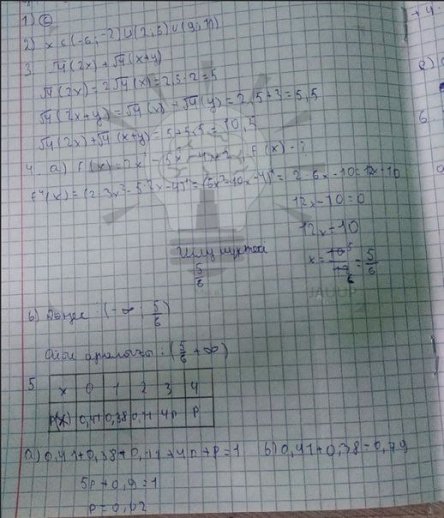 1) C
2) x ∈ (-6; -2) ∪ (2, 6) ∪ (9, 11)
3 M(2x) + M(x+y)
M(2x) = 2M(x) = 2,5 · 2 = 5
M(x) + M(y) = 2,5 + 3 = 5,5
M(2x) + M(x+y) = 5 + 5,5 = 10,5
4. a) f(x) = 2x³ - 5x² - 4x
f''(x) = (2·3x² - 5·2x - 4)' = (6x² - 10x - 4)' = 2·6x - 10 = 12x - 10
12x - 10 = 0
12x = 10
x = 10/12 = 5/6
Иілу нүктесі
5/6
JAUAP
b) Дөңес (-∞, 5/6)
Ойыс аралығы: (5/6, +∞)
5
x 0 1 2 3 4
P(X) 0,41 0,38 0,11 4p p
a) 0,41 + 0,38 + 0,11 + 4p + p = 1 b) 0,41 + 0,38 = 0,79
5p + 0,9 = 1
p = 0,02